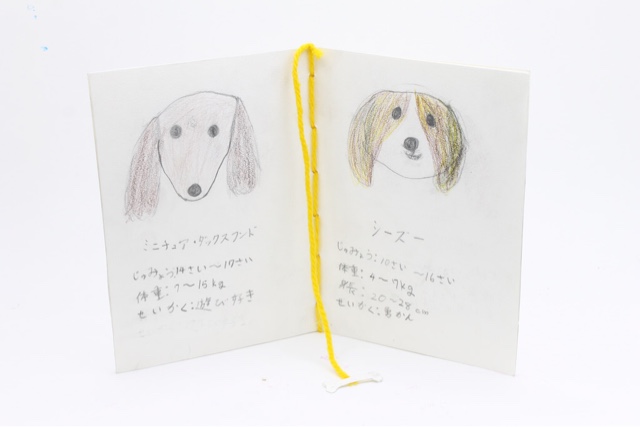 ミニチュア・ダックスフンド
じゅみょう:14さい〜17さい
体重:7〜15kg
せいかく:遊び好き
シーズー
じゅみょう:10さい〜16さい
体重:4〜7kg
体長:20〜28cm
せいかく:勇かん